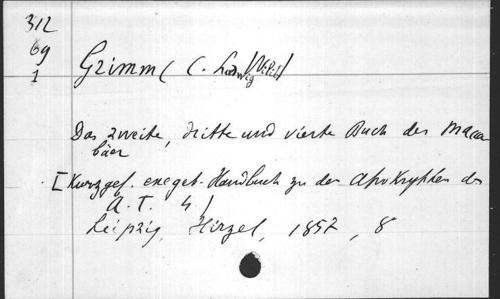 312
69
1
Grimm (C. Ludwig
Das zweite, dritte und vierte Buch der Macca
bäer
[Kurzgef. exeget. Handbuch zu den Apokryphen des
A. T. 4]
Leipzig, Hirzel, 1857, 8